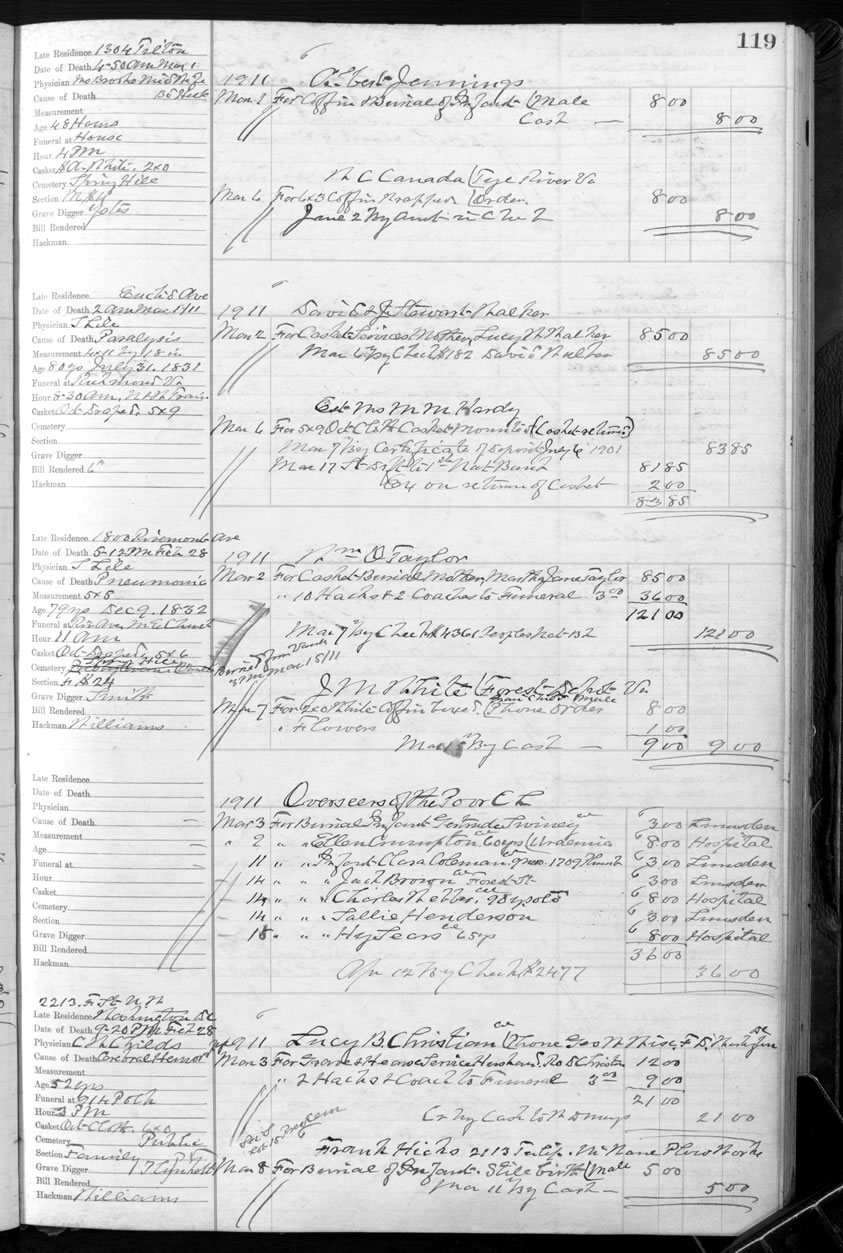 119
Late Residence 1304 Tilton
Date of Death 4-50 am Mar 1
Physician Mrs Brooks Mid Wife
Cause of Death
Measurement
Age 48 Hours
Funeral at House
Hour 4 PM
Casket White 2x0
Cemetery Spring Hill
Section
Grave Digger Yates
Bill Rendered
Hackman
1911 Albert Jennings
Mar 1 For Coffin & Burial of Infant (Male 8 00
Cash — 8 00
N C Canada (Tye River Va
Mar 6 For 6x3 Coffin Wrapped (Order. 8 00
June 2 By Amt in 8 00
Late Residence Euclid Ave
Date of Death 2 am Mar 1/11
Physician S Lile
Cause of Death Paralysis
Measurement 4 ft 11 by 18 in
Age 80 ys July 31. 1831
Funeral at Richmond Va
Hour 5-30 am. Train
Casket Oct Draped, 5x9
Cemetery
Section
Grave Digger
Bill Rendered 6th
Hackman
1911 David & J Stewart Walker
Mar 2 For Casket Services Mother, Lucy W Walker 85 00
Mar 6th By Check #182 David Walker 85 00
Est Mrs M M Hardy
Mar 6 For 5x9 Oct Cloth Casket Mounted (Casket returned)
Mar 7th By Certificate of Deposit 1901 83 85
Mar 17 1st Nat Bank 81 85
Cr on return of Casket 2 00
83 85
Late Residence 1800 Rivermont Ave
Date of Death 5-12 PM Feb 28
Physician S Lile
Cause of Death Pneumonia
Measurement 5x5
Age 79 ys Dec 9. 1832
Funeral at Riv Ave M E Church
Hour 11 am
Casket Oct Draped, 5x6
Cemetery Spring Hill
Section
Grave Digger Smith
Bill Rendered
Hackman Williams
1911 Wm O Taylor
Mar 2 For Casket Burial Mother, Martha Jane Taylor 85 00
" 10 Hacks & 2 Coaches to Funeral 3 00 36 00
121 00
Mar 7th By Check #4361 Peoples Nat 121 00
Buried from Vault
3 PM Mar 15/11
J M White (Forest Depot Va
Mar 7 For 2x0 White Coffin (Phone Order 8 00
" Flowers 1 00
Mar By Cash — 9 00 9 00
Late Residence
Date of Death
Physician
Cause of Death —
Measurement
Age —
Funeral at —
Hour
Casket
Cemetery
Section
Grave Digger
Bill Rendered
Hackman
1911 Overseers of the Poor C L
Mar 3 For Burial Infant Gertrude Twiney col 3 00 Lumsden
" 2 " " Ellen Crumpton col 60 yrs (Uraemia 8 00 Hospital
11 " " Infant Clara Coleman 9 mo. 1709 3 00 Lumsden
14 " " Jack Brown col Forest St 3 00 Lumsden
14 " " Charles Webber, col 98 ys old 8 00 Hospital
14 " " Sallie Henderson 3 00 Lumsden
15 " " Hy Sears col 65 ys 8 00 Hospital
36 00
Apr 12 By Check #2477 36 00
2213. F St. N.W
Late Residence Washington DC
Date of Death 9-20 PM Feb 28
Physician C W Childs
Cause of Death Cerebral Hemor
Measurement
Age 52 yrs
Funeral at 914 Polk
Hour 3 PM
Casket Oct Cloth. 6x0
Cemetery Public
Section Family
Grave Digger
Bill Rendered
Hackman Williams
1911 Lucy B. Christian col (From Geo W Wise, F D, Washington DC
Mar 3 For Grave & Hearse Service Husband, Christian 12 00
" 2 Hacks & Coach to Funeral 3 00 9 00
21 00
Cr By Cash 21 00
Frank Hicks 2113 Tulip. Plow Works
Mar 8 For Burial of Infant. Still birth (Male 5 00
Mar 11th By Cash — 5 00